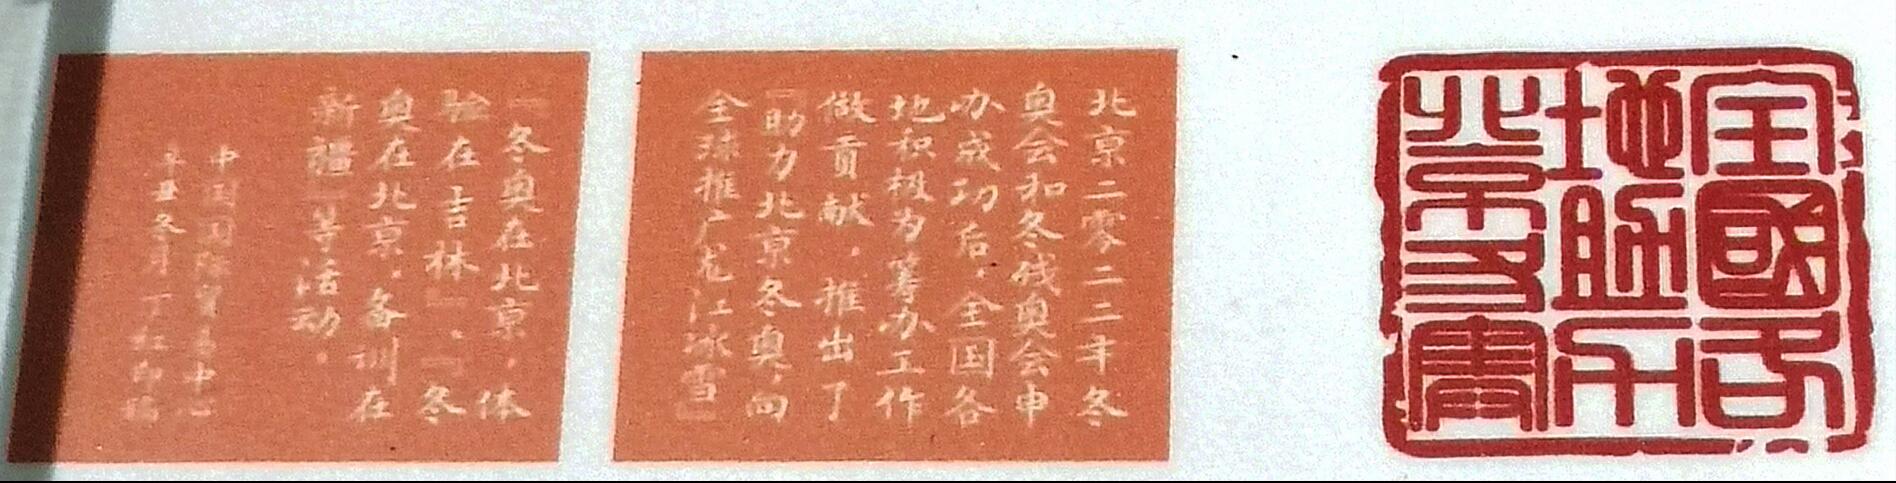 全國各
地助力
北京冬奥
北京二零二二年冬
奥会和冬残奥会申
办成功后，全国各
地积极为筹办工作
做贡献，推出了
『助力北京冬奥，向
全球推广龙江冰雪』
『冬奥在北京，体
验在吉林』、『冬
奥在北京，备训在
新疆』等活动。
中国国际贸易中心
辛丑冬月丁红印稿